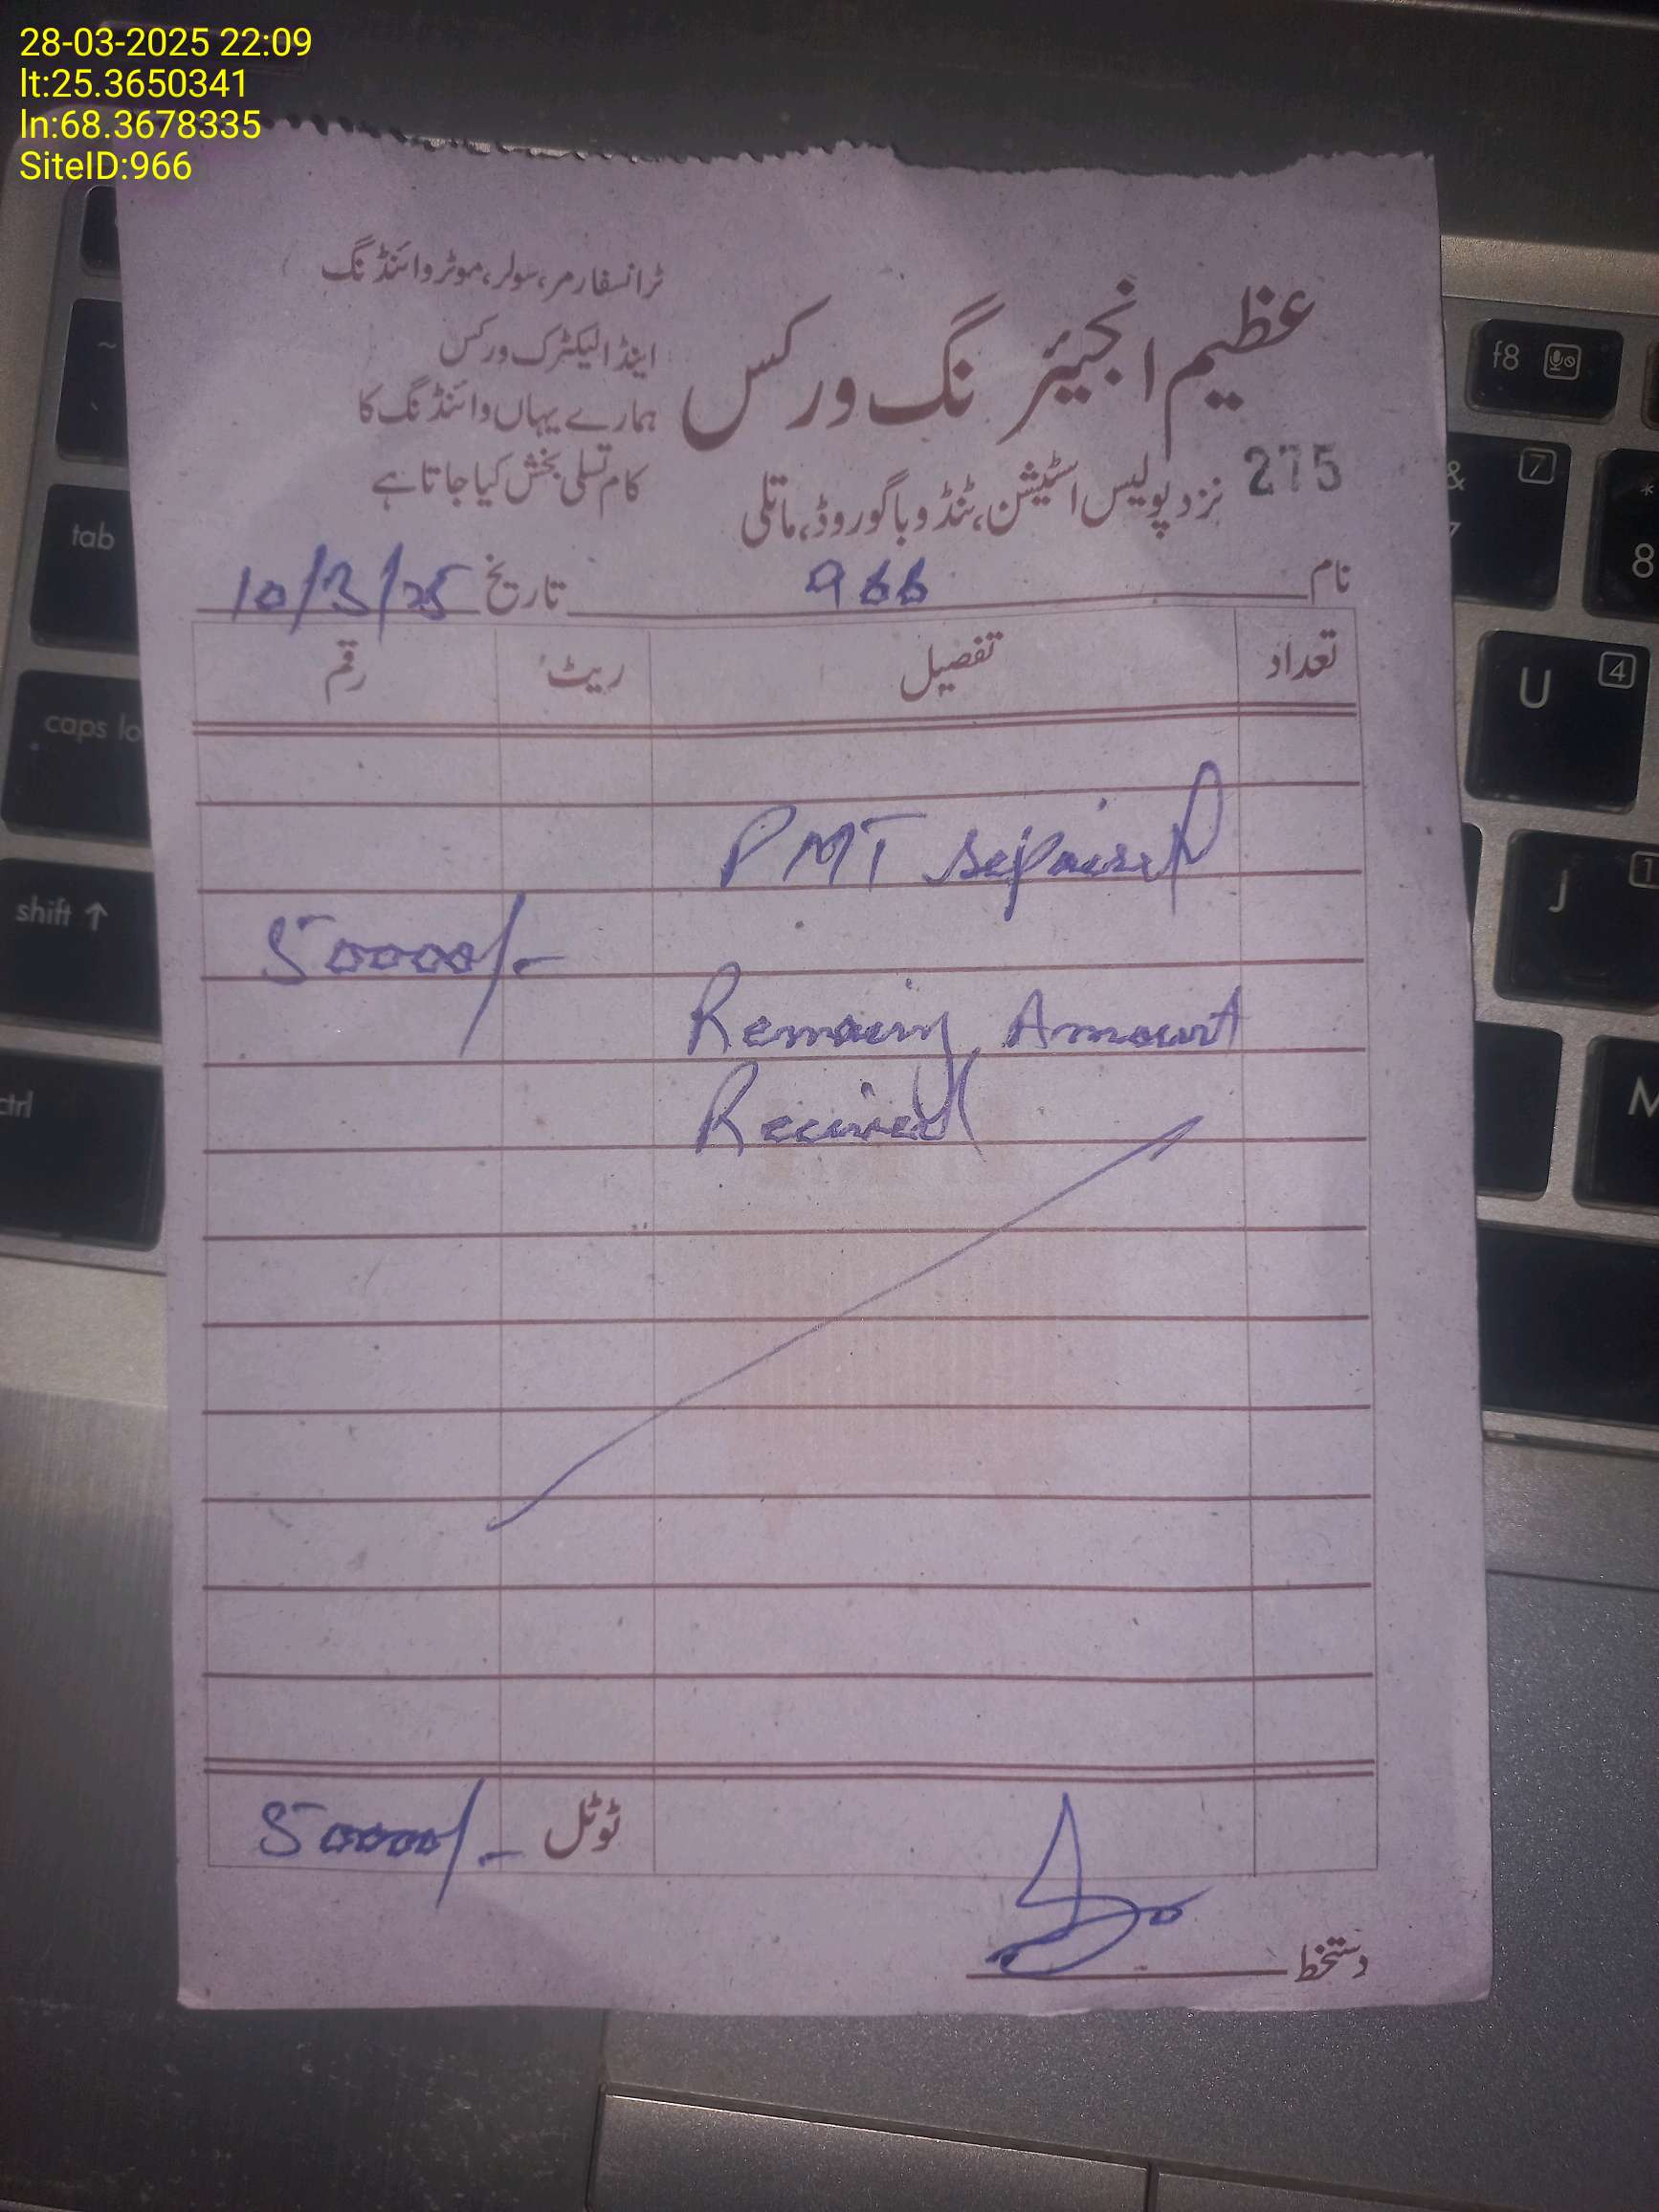 28-03-2025 22:09
lt:25.3650341
ln:68.3678335
SiteID:966
عظیم انجیئرنگ ورکس
ٹرانسفارمر، سولر، موٹر وائنڈنگ
اینڈ الیکٹرک ورکس
ہمارے یہاں وائنڈنگ کا
کام تسلی بخش کیا جاتا ہے
275
نزد پولیس اسٹیشن، ٹنڈو باگو روڈ، ماتلی
نام 966 تاریخ 10/3/25
تعداد تفصیل ریٹ رقم
PMT repaired
50000/-
Remainig Amount
Received
ٹوٹل 50000/-
دستخط
f8
& 7
7
* 8
tab
caps lo
shift ↑
ctrl
U 4
J 1
M